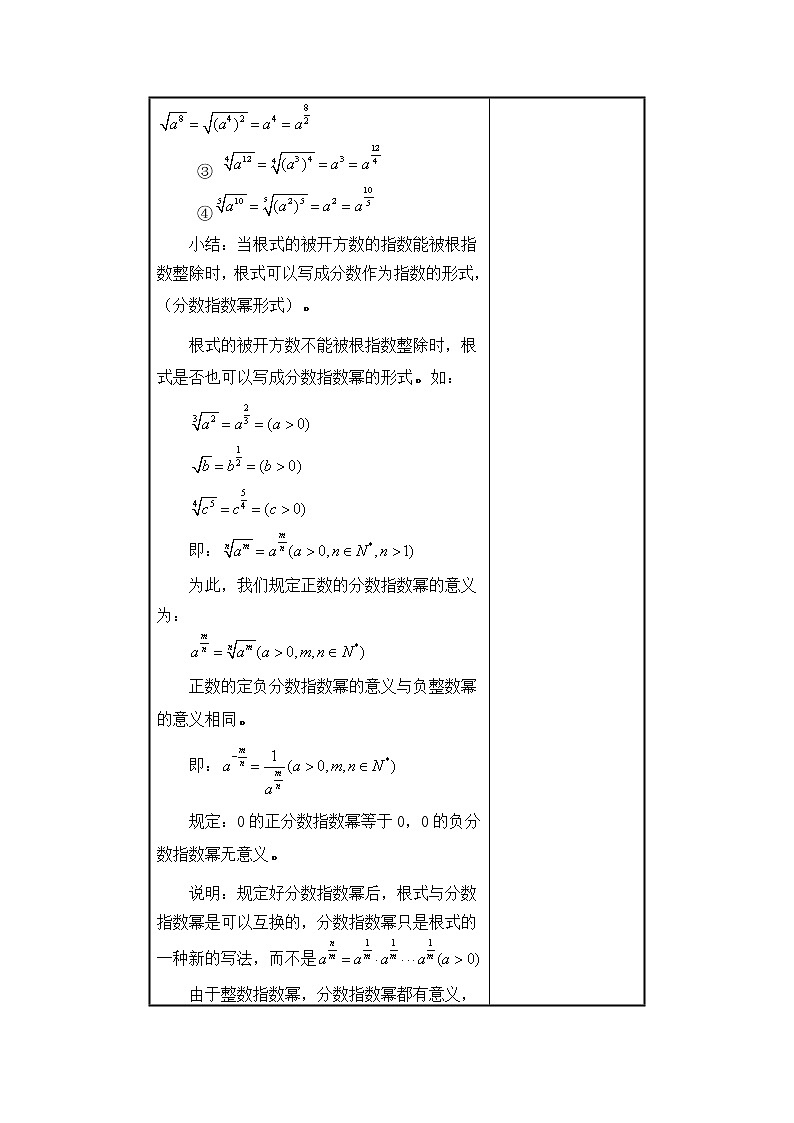 √(a⁸) = √((a⁴)²) = a⁴ = a^(8/2)
③ ⁴√(a¹²) = ⁴√((a³)⁴) = a³ = a^(12/4)
④ ⁵√(a¹⁰) = ⁵√((a²)⁵) = a² = a^(10/5)
小结：当根式的被开方数的指数能被根指
数整除时，根式可以写成分数作为指数的形式，
（分数指数幂形式）。
根式的被开方数不能被根指数整除时，根
式是否也可以写成分数指数幂的形式。如：
³√(a²) = a^(2/3) = (a > 0)
√b = b^(1/2) = (b > 0)
⁴√(c⁵) = c^(5/4) = (c > 0)
即：ⁿ√(a^m) = a^(m/n) (a > 0, n ∈ N*, n > 1)
为此，我们规定正数的分数指数幂的意义
为：
a^(m/n) = ⁿ√(a^m) (a > 0, m, n ∈ N*)
正数的定负分数指数幂的意义与负整数幂
的意义相同。
即：a^(-m/n) = 1/a^(m/n) (a > 0, m, n ∈ N*)
规定：0 的正分数指数幂等于 0，0 的负分
数指数幂无意义。
说明：规定好分数指数幂后，根式与分数
指数幂是可以互换的，分数指数幂只是根式的
一种新的写法，而不是 a^(n/m) = a^(1/m) · a^(1/m) ··· a^(1/m) (a > 0)
由于整数指数幂，分数指数幂都有意义，